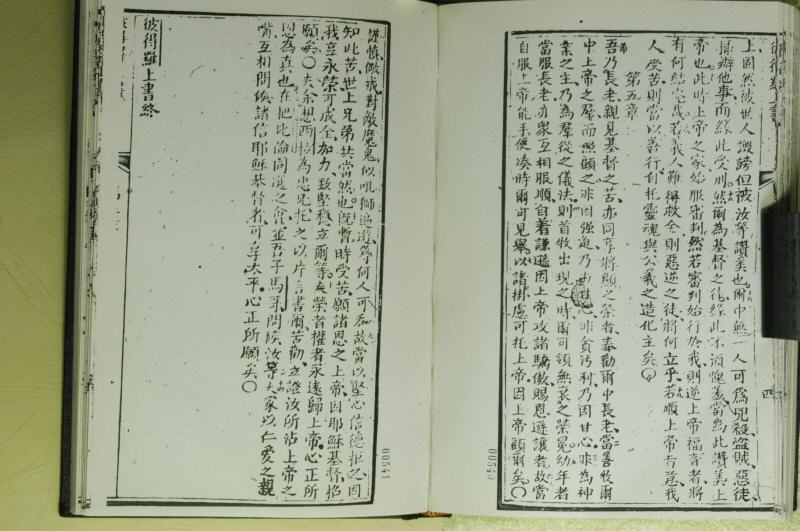 上固然被世人謗但被汝等讚美也爾中無一人可爲兇殺盜賊惡徒
擅辦他事而緣此受刑然爾爲基督之徒緣此不須愧羞當爲此讚美上
帝也此時上帝之家始服審判然若審判始行於我則逆上帝福音者將
有何結完哉若義人難得救全則惡逆之徒將何立乎若順上帝旨意我
人受苦則當以善行自托靈魂與公義之造化主矣○
第五章
吾乃長老親見基督之苦亦同享將顯之榮者奉勸爾中長老當善牧爾
中上帝之羣而照顧之非因強迫乃由心非貪污利乃因甘心非爲神
業之主乃爲羣從之儀法則首牧出現之時爾可領無衰之榮冕幼年者
當服長老亦衆互相服順自着謙遜因上帝攻諸驕傲賜恩遜讓者故當
自服上帝能手便湊時爾可見舉以諸掛慮可托上帝因上帝顧爾矣○
謹慎儆戒對敵魔鬼似吼獅遍遊尋何人可吞故當以堅心信德拒之因
知此苦世上兄弟共當然也既暫時受苦願諸恩之上帝因耶穌基督招
我享永榮可成全加力致堅穩立爾等矣榮者權者永遠歸上帝心正所
願矣○夫余想西拉爲忠兄托之以片言書爾苦勸立證汝所沾上帝之
恩爲真也在把比倫同選之會並吾子馬可問候汝等大家以仁愛之親
嘴互相問候諸信耶穌基督者可享太平心正所願矣○
彼得羅上書終
00540
00541